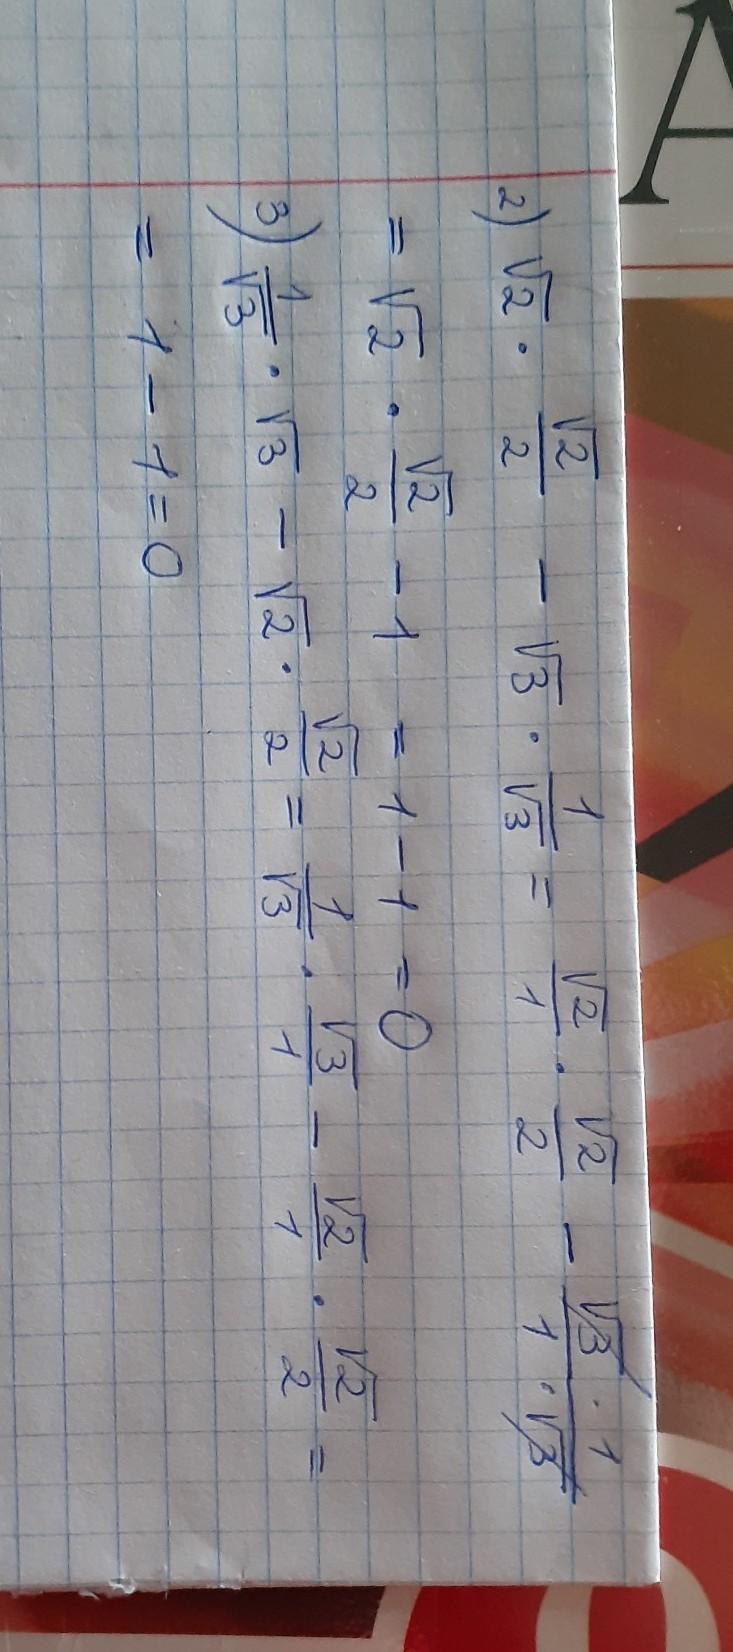 A
2) √2 · √2/2 − √3 · 1/√3 = √2/1 · √2/2 − √3 · 1/1 · √3
= √2 · √2/2 − 1 = 1 − 1 = 0
3) 1/√3 · √3 − √2 · √2/2 = 1/√3 · √3/1 − √2/1 · √2/2 =
= 1 − 1 = 0